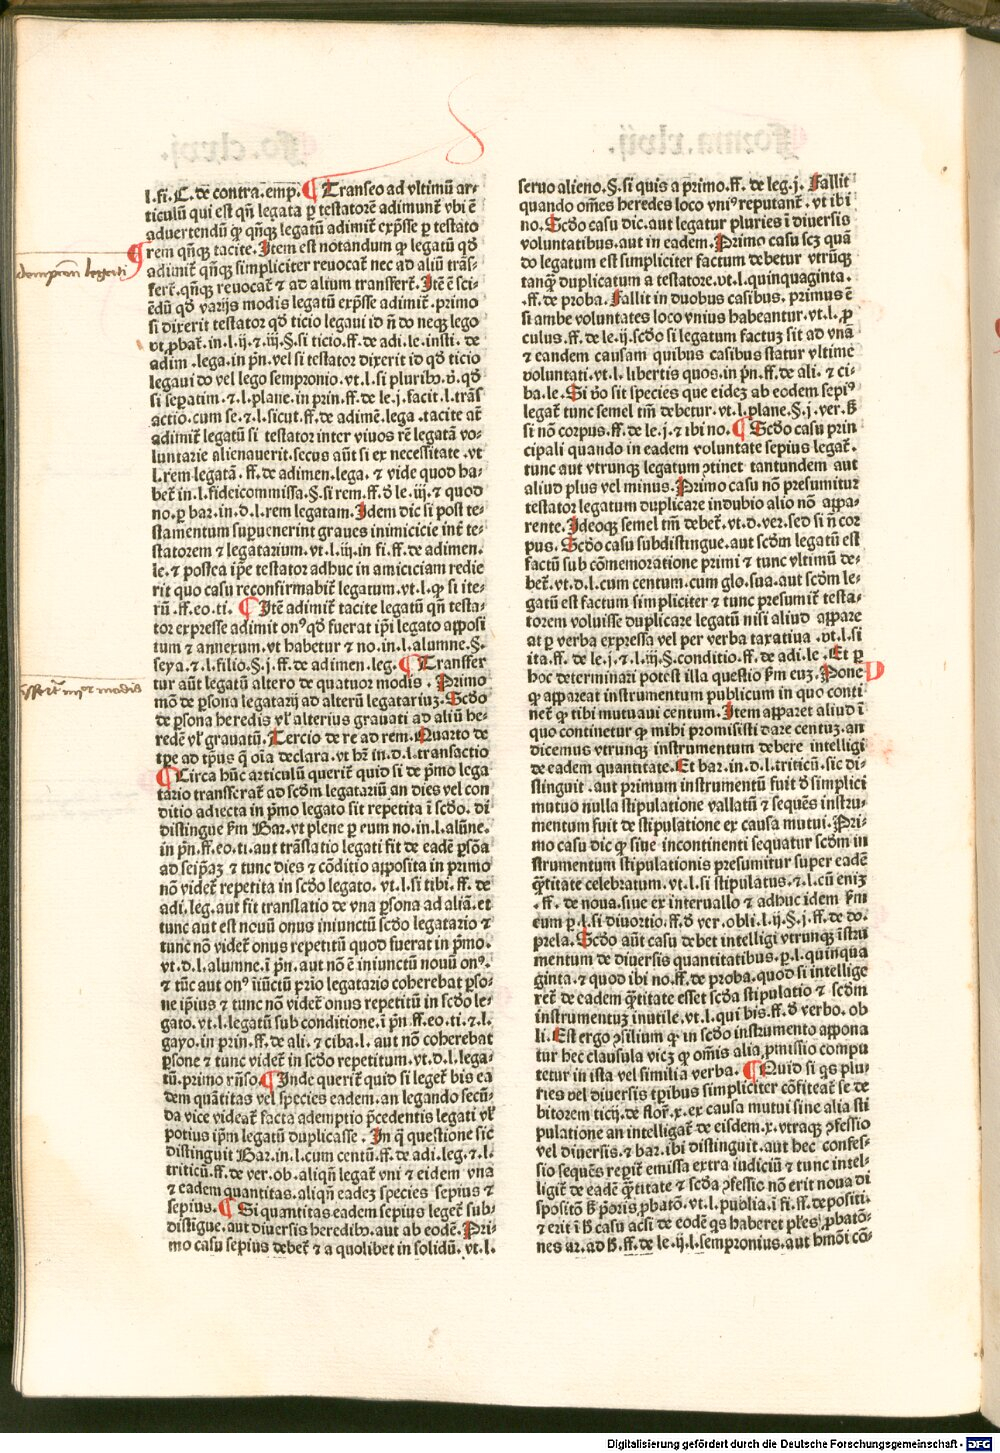 l.fi.C.de contra.emp. ¶ Transeo ad vltimū ar⸗
ticulū qui est qn̄ legata ꝑ testatorē adimunt᷑ vbi ē
aduertendū ꝙ qn̄qꝫ legatū adimit᷑ exp̄sse ꝑ testato
rem qn̄qꝫ tacite. Item est notandum ꝙ legatū qd̄
adimit᷑ qn̄qꝫ simpliciter reuocat᷑ nec ad aliū trās⸗
fert᷑.qn̄qꝫ reuocat᷑ ⁊ ad alium transfert᷑. Itē ē sci⸗
ēdū qd̄ varijs modis legatū exp̄sse adimit᷑.primo
si dixerit testator qd̄ ticio legaui id n̄ do neqꝫ lego
vt ꝓbat᷑.in.l.ij.⁊.iij.§.si ticio.ff.de adi.le.insti.de
adim.lega.in pn̄.vel si testator dixerit id qd̄ ticio
legaui do vel lego sempronio.vt.l.si pluribꝰ.
si sepatim.⁊.l.plane.in prin.ff.de le.j.facit.l.trās
actio.cum se.⁊.l.sicut.ff.de adimē.lega.tacite at̄
adimit᷑ legatū si testator inter viuos rē legatā vo⸗
luntarie alienauerit.secus aūt si ex necessitate.vt
l.rem legatā.ff.de adimen.lega.⁊ vide quod ha⸗
bet᷑ in.l.fideicommissa.§.si rem.ff.d̄ le.iij.⁊ quod
no.ꝑ bar.in.d.l.rem legatam. Idem dic si post te⸗
stamentum supuenerint graues inimicicie int᷑ te⸗
statorem ⁊ legatarium.vt.l.iij.in fi.ff.de adimen.
le.⁊ postea ip̄e testator adhuc in amiciciam redie
rit quo casu reconfirmabit᷑ legatum.vt.l.ꝙ si ite⸗
rū.ff.eo.ti. ¶ Itē adimit᷑ tacite legatū qn̄ testa⸗
tor expresse adimit onꝰ qd̄ fuerat ip̄i legato apposi
tum ⁊ annexum.vt habetur ⁊ no.in.l.alumne.§.
seya.⁊.l.filio.§.j.ff.de adimen.leg. ¶ Transfer
tur aūt legatū altero de quatuor modis. Primo
mō de ꝑsona legatarij ad alterū legatariuꝫ. Scd̄o
de ꝑsona heredis vl᷑ alterius grauati ad aliū he⸗
redē vl᷑ grauatū. Tercio de re ad rem. Quarto de
tp̄e ad tp̄us ꝙ oīa declara.vt hr̄ in.d.l.transactio
¶ Circa hūc articulū querit᷑ quid si de pͥmo lega
tario transferat᷑ ad scd̄m legatariū an dies vel con
ditio adiecta in pͥmo legato sit repetita ī scd̄o. di
distingue ẜm Bar.vt plene ꝑ eum no.in.l.alūne.
in pn̄.ff.eo.ti.aut trāslatio legati fit de eadē ꝑsōa
ad seip̄aꝫ ⁊ tunc dies ⁊ cōditio apposita in primo
nō videt᷑ repetita in scd̄o legato.vt.l.si tibi.ff.de
adi.leg.aut fit translatio de vna ꝑsona ad aliā.et
tunc aut est nouū onus iniunctū scd̄o legatario ⁊
tunc nō videt᷑ onus repetitū quod fuerat in pͥmo.
vt.d.l.alumne.ī pn̄.aut nō ē iniunctū nouū onꝰ.
⁊ tūc aut onꝰ iūctū pͥrio legatario coherebat ꝑso⸗
ne ip̄ius ⁊ tunc nō videt᷑ onus repetitū in scd̄o le⸗
gato.vt.l.legatū sub conditione.ī pn̄.ff.eo.ti.⁊.l.
gayo.in prin.ff.de ali.⁊ ciba.l.aut nō coherebat
ꝑsone ⁊ tunc videt᷑ in scd̄o repetitum.vt.d.l.lega⸗
tū.primo rn̄so. ¶ Inde querit᷑ quid si leget᷑ bis ea
dem quātitas vel species eadem.an legando secū⸗
da vice videat᷑ facta ademptio p̄cedentis legati vl᷑
potius ip̄m legatū duplicasse. In q̄ questione sic
distinguit Bar.in.l.cum centū.ff.de adi.leg.⁊.l.
triticū.ff.de ver.ob.aliqn̄ legat᷑ vni ⁊ eidem vna
⁊ eadem quantitas.aliqn̄ eadeꝫ species sepius ⁊
sepius. ¶ Si quantitas eadem sepius leget᷑ sub⸗
distīgue.aut diuersis heredibꝰ.aut ab eodē. Pri⸗
mo casu sepius debet᷑ ⁊ a quolibet in solidū.vt.l.
seruo alieno.§.si quis a primo.ff.de leg.j. Fallit
quando om̄es heredes loco vniꝰ reputant᷑.vt ibi
no. Scd̄o casu dic.aut legatur pluries ī diuersis
voluntatibus.aut in eadem. Primo casu scꝫ quā
do legatum est simpliciter factum debetur vtrūqꝫ
tanqꝫ duplicatum a testatore.vt.l.quinquaginta.
.ff.de proba. Fallit in duobus casibus.primus ē
si ambe voluntates loco vnius habeantur.vt.l.ꝓ
culus.ff.de le.ij.scd̄o si legatum factuꝫ sit ad vnā
⁊ eandem causam quibus casibus statur vltime
voluntati.vt.l.libertis quos.in pn̄.ff.de ali.⁊ ci⸗
ba.le. Si v̄o sit species que eideꝫ ab eodem sepiꝰ
legat᷑ tunc semel tm̄ debetur.vt.l.plane.§.j.ver.ẜ
si nō corpus.ff.de le.j.⁊ ibi no. ¶ Scd̄o casu prin
cipali quando in eadem voluntate sepius legat᷑.
tunc aut vtrunqꝫ legatum ꝯtinet tantundem aut
aliud plus vel minus. Primo casu nō presumitur
testator legatum duplicare indubio alio nō appa⸗
rente. Ideoqꝫ semel tm̄ debet᷑.vt.d.ver.sed si n̄ cor
pus. Scd̄o casu subdistingue.aut scd̄m legatū est
factū sub cōmemoratione primi ⁊ tunc vltimū de⸗
bet᷑.vt.d.l.cum centum.cum glo.sua.aut scd̄m le⸗
gatū est factum simpliciter ⁊ tunc presumit᷑ testa⸗
torem voluisse duplicare legatū nisi aliud appare
at ꝑ verba expressa vel per verba taxatiua.vt.l.si
ita.ff.de le.j.⁊.l.iij.§.conditio.ff.de adi.le. Et ꝑ
hoc determinari potest illa questio ẜm euꝫ. Pone
ꝙ appareat instrumentum publicum in quo conti
net᷑ ꝙ tibi mutuaui centum. Item apparet aliud ī
quo continetur ꝙ mihi promisisti dare centuꝫ.an
dicemus vtrunqꝫ instrumentum debere intelligi
de eadem quantitate. Et bar.in.d.l.triticū.sic di⸗
stinguit.aut primum instrumentū fuit d̄ simplici
mutuo nulla stipulatione vallatū ⁊ sequēs instru⸗
mentum fuit de stipulatione ex causa mutui. Pri⸗
mo casu dic ꝙ siue incontinenti sequatur scd̄m in
strumentum stipulationis presumitur super eadē
q̄titate celebratum.vt.l.si stipulatus.⁊.l.cū eniꝫ
.ff.de noua.siue ex interuallo ⁊ adhuc idem ẜm
eum ꝑ.l.si diuortio.ff.d̄ ver.obli.l.ij.§.j.ff.de do.
prela. Scd̄o aūt casu debet intelligi vtrunqꝫ īstru
mentum de diuersis quantitatibus.ꝑ.l.quinqua
ginta.⁊ quod ibi no.ff.de proba.quod si intellige
ret᷑ de eadem q̄titate esset scd̄a stipulatio ⁊ scd̄m
instrumentuꝫ inutile.vt.l.qui bis.ff.d̄ verbo.ob
li. Est ergo ꝯsilium ꝙ in scd̄o instrumento appona
tur hec clausula vicꝫ ꝙ om̄is alia ꝓmissio compu
tetur in ista vel similia verba. ¶ Quid si qs plu⸗
ries vel diuersis tꝑibus simpliciter cōfiteat᷑ se de
bitorem ticij.de flor᷑.x.ex causa mutui sine alia sti
pulatione an intelligat᷑ de eisdem.x.vtraqꝫ ꝯfessio
vel diuersis.⁊ bar.ibi distinguit.aut hec confes⸗
sio sequēs reꝑit᷑ emissa extra iudiciū ⁊ tunc intel⸗
ligit᷑ de eadē q̄titate ⁊ scd̄a ꝯfessio nō erit noua di
spōsitō ẜ pͥoris ꝓbatō.vt.l.publia.ī fi.ff.depositi.
⁊ erit ī ẜ casu acsi de eodē qs haberet pl᷑es ꝓbatō⸗
nes ar.ad ẜ.ff.de le.ij.l.sempronius.aut hm̄ōi cō⸗
D
Digitalisierung gefördert durch die Deutsche Forschungsgemeinschaft - DFG